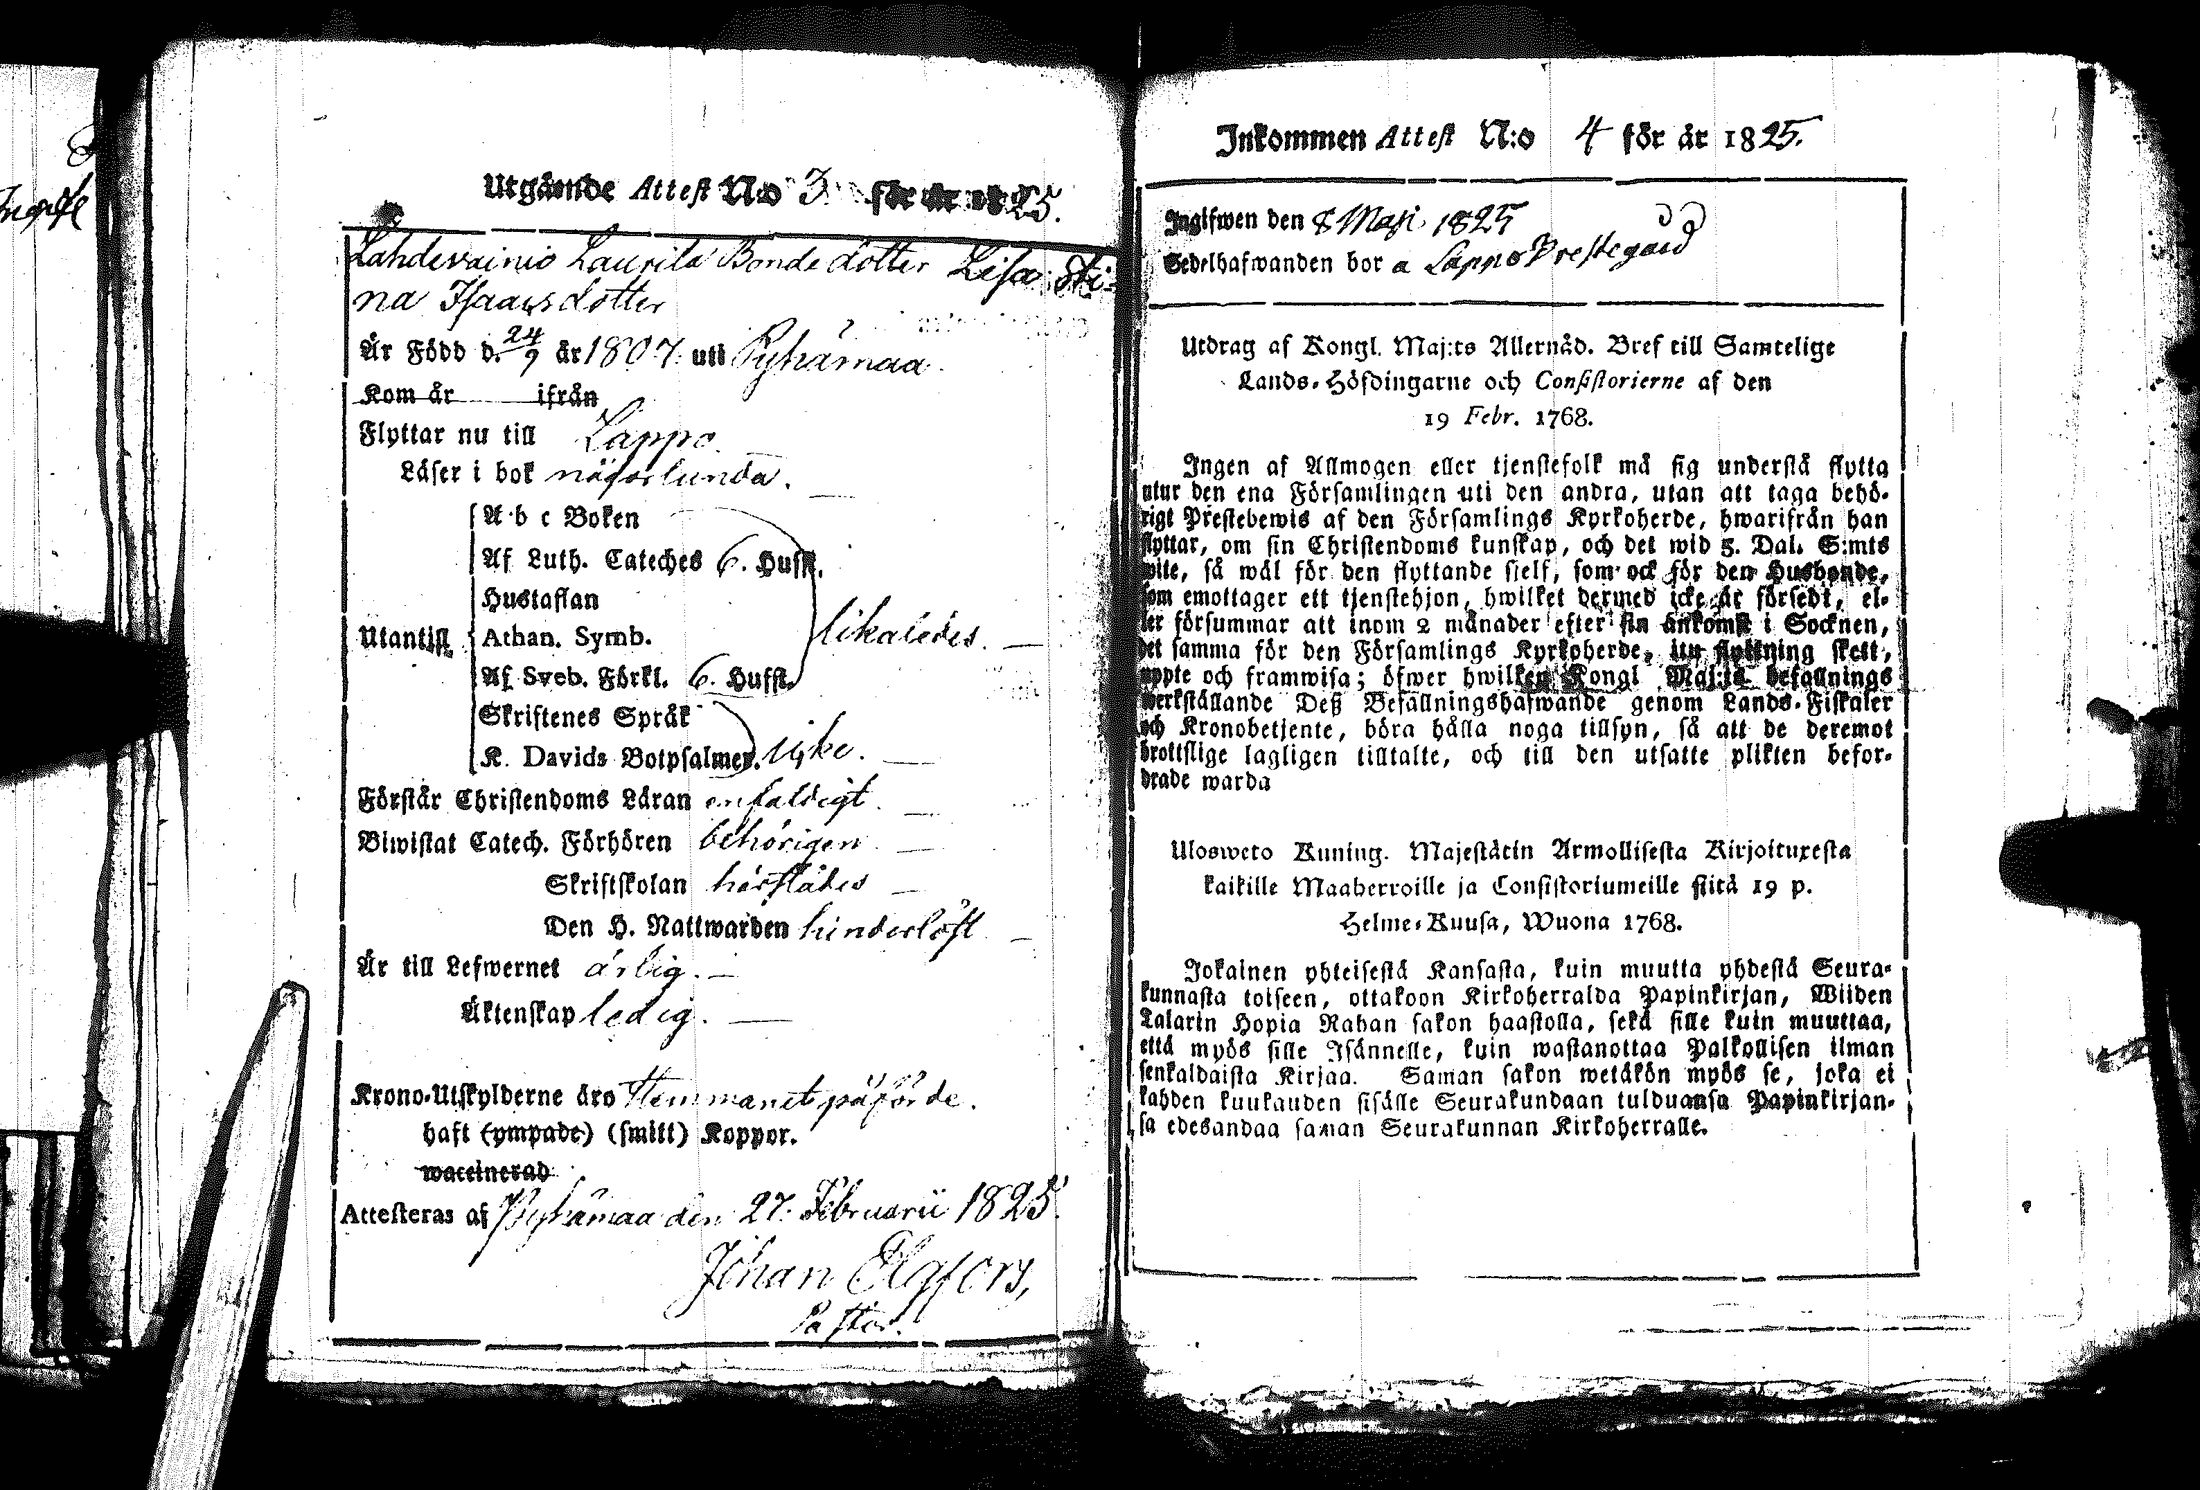 Utgående Attest No 3 för år 1825.
Lahdevainio Laurila Bonde dotter Lisa Sti-
na Isaacsdotter
Är Född d. 24/9 år 1807 uti Pyhämaa.
Kom år ifrån
Flyttar nu till Lappo.
Läser i bok någorlunda.
A b c Boken
Af Luth. Cateches 6. Hufst.
Hustaflan
Utantill Athan. Symb. likaledes.
Af Sveb. Förkl. 6. Hufst.
Skriftenes Språk
K. Davids Botpsalmer. icke.
Förstår Christendoms Läran enfaldigt.
Biwistat Catech. Förhören behörigen
Skriftskolan härstädes
Den H. Nattwarden hinderlöst
Är till Lefwernet ärlig.
Äktenskap ledig.
Krono-Utskylderne äro Hemmanet påförde.
haft (ympade) (smitt) Koppor.
waccinerad
Attesteras af Pyhämaa den 27. Februarii 1825.
Johan Elgfors,
Pastor.
Inkommen Attest N:o 4 för år 1825.
Ingifwen den 8 Maji 1825
Sedelhafwanden bor a Lappo Prestegård
Utdrag af Kongl. Maj:ts Allernåd. Bref till Samtelige
Lands-Höfdingarne och Consistorierne af den
19 Febr. 1768.
Ingen af Allmogen eller tjenstefolk må sig understå flytta
utur den ena Församlingen uti den andra, utan att taga behö-
rigt Prestebewis af den Församlings Kyrkoherde, hwarifrån han
flyttar, om sin Christendoms kunskap, och det wid 5. Dal. S:mts
wite, så wäl för den flyttande sielf, som ock för den Husbonde,
som emottager ett tjenstehjon, hwilket dermed icke är försedt, el-
ler försummar att inom 2 månader efter sin ankomst i Socknen,
det samma för den Församlings Kyrkoherde, dit flyttning skett,
uppte och framwisa; öfwer hwilken Kongl Maj:ts befallnings
werkställande Deß Befallningshafwande genom Lands-Fiskaler
och Kronobetjente, böra hålla noga tillsyn, så att de deremot
brottslige lagligen tilltalte, och till den utsatte plikten befor-
drade warda
Ulosweto Kuning. Majestätin Armollisesta Kirjoituxesta
kaikille Maaherroille ja Consistoriumeille siitä 19 p.
Helme-Kuusa, Wuona 1768.
Jokainen yhteisestä Kansasta, kuin muutta yhdestä Seura-
kunnasta toiseen, ottakoon Kirkoherralda Papinkirjan, Wiiden
Talarin Hopia Rahan sakon haastolla, sekä sille kuin muuttaa,
että myös sille Isännelle, kuin wastanottaa Palkollisen ilman
senkaldaista Kirjaa. Saman sakon wetäkön myös se, joka ei
kahden kuukauden sisälle Seurakundaan tulduansa Papinkirjan-
sa edesandaa saman Seurakunnan Kirkoherralle.